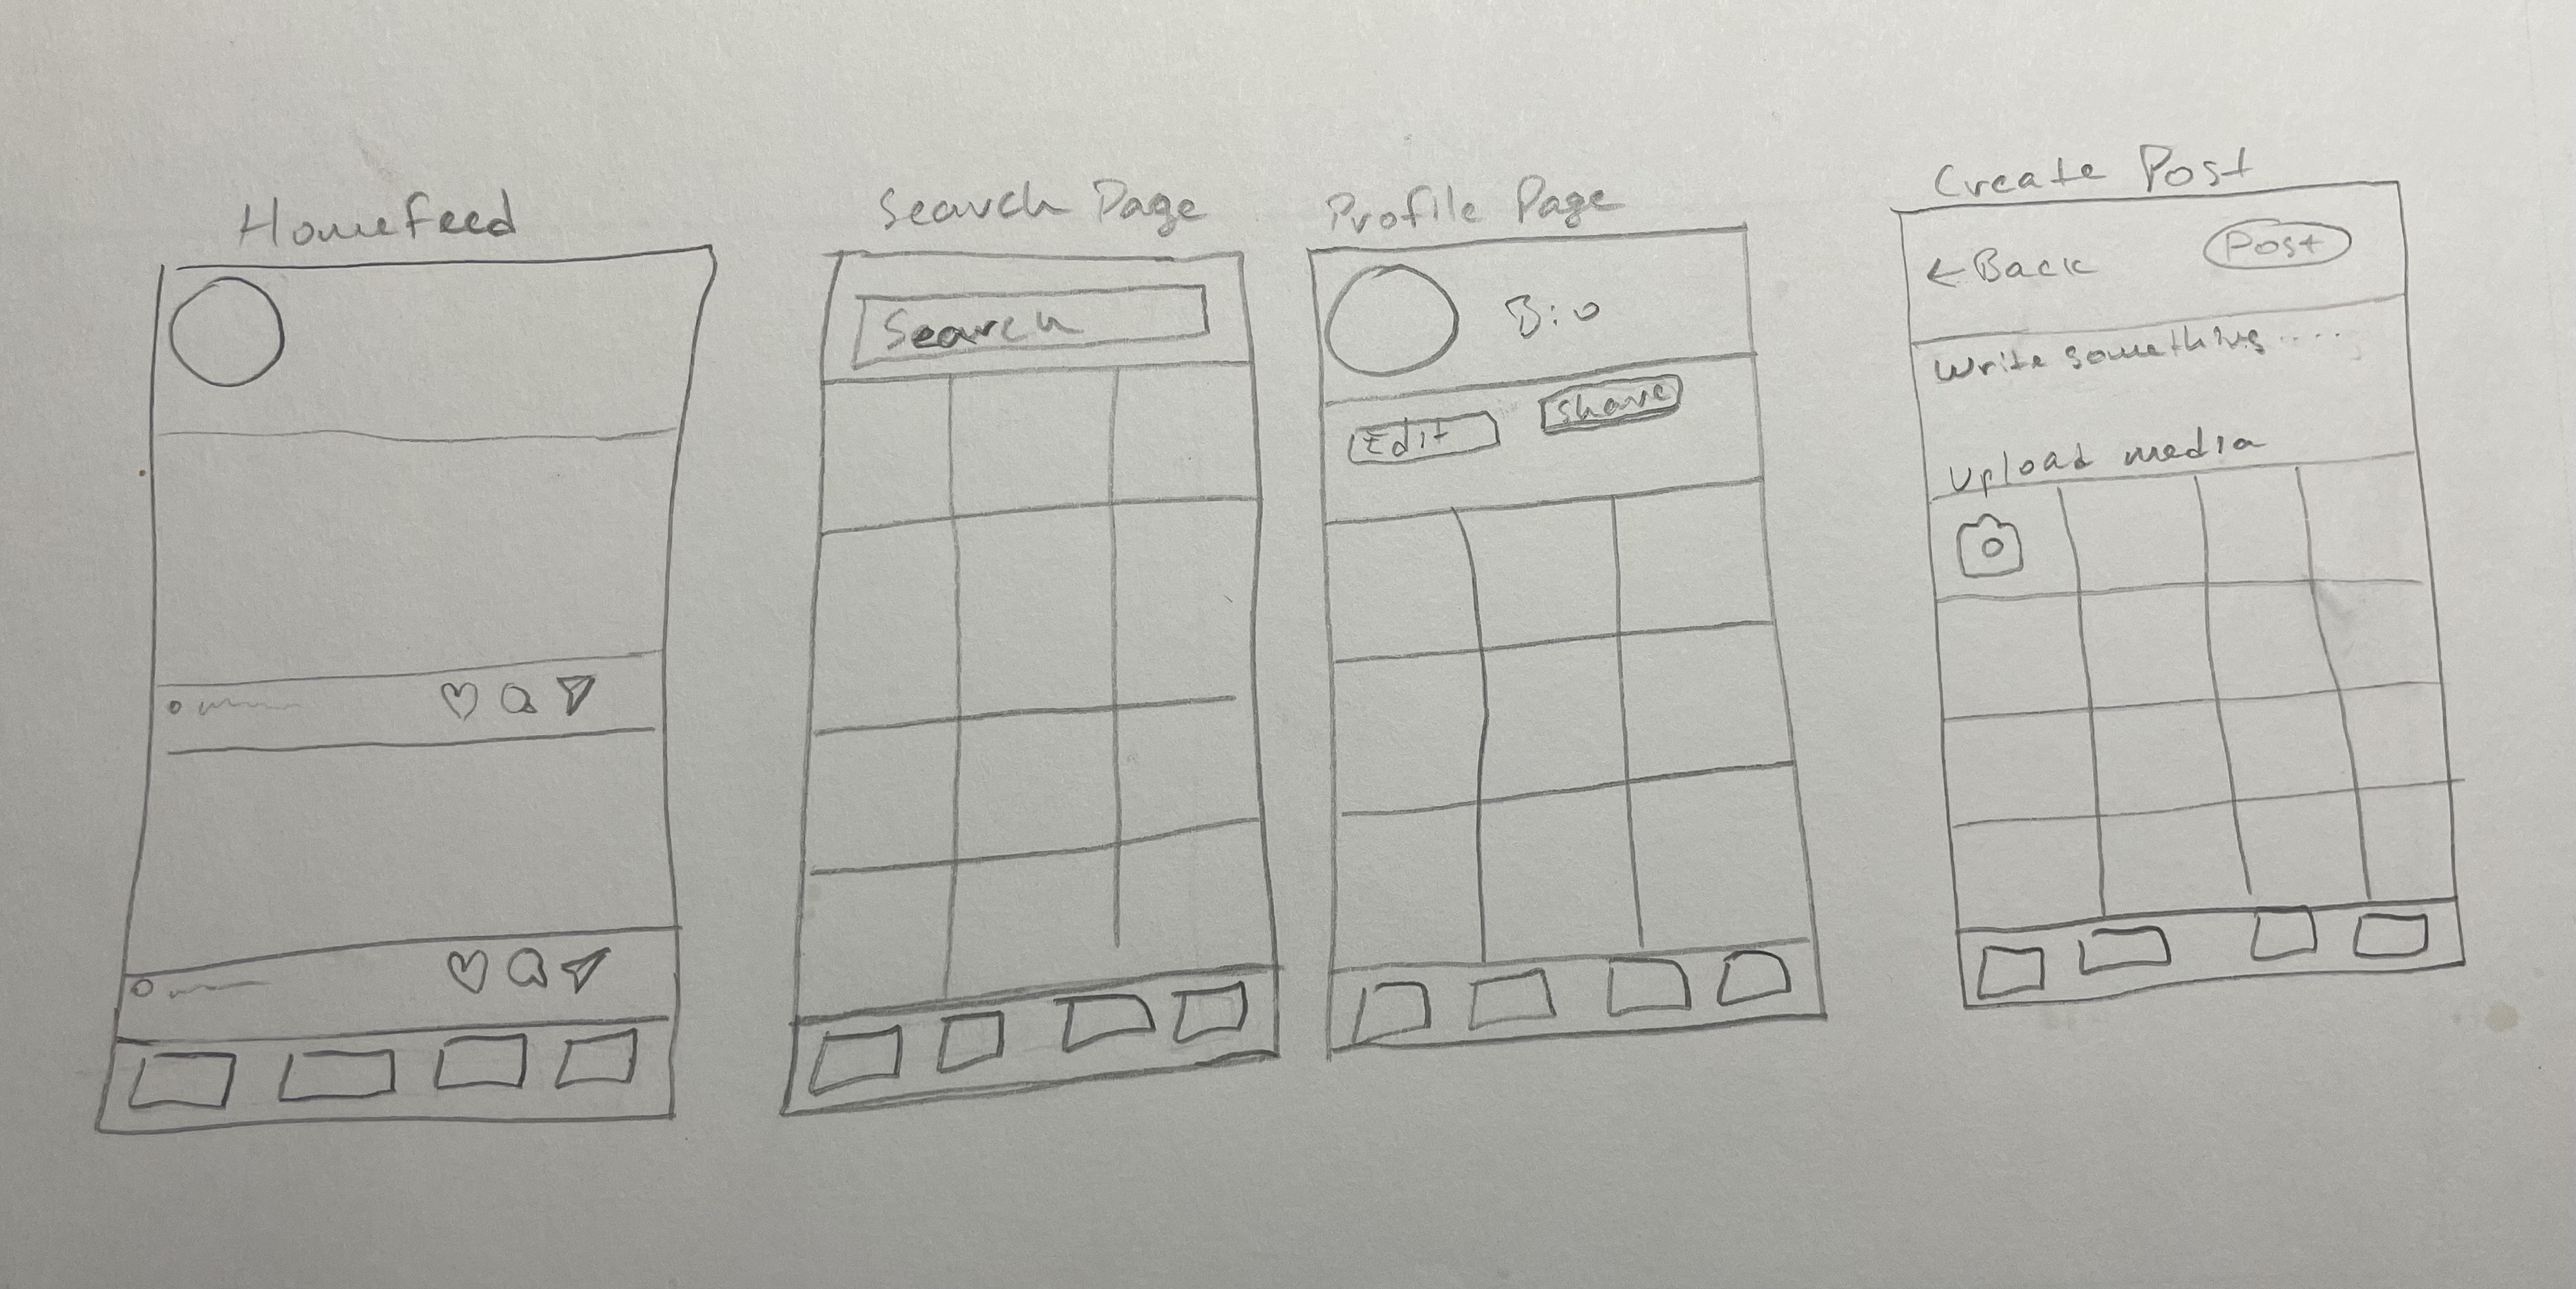 HomeFeed
Search Page
Search
Profile Page
Bio
Edit
Share
Create Post
←Back
Post
Write something....
Upload media